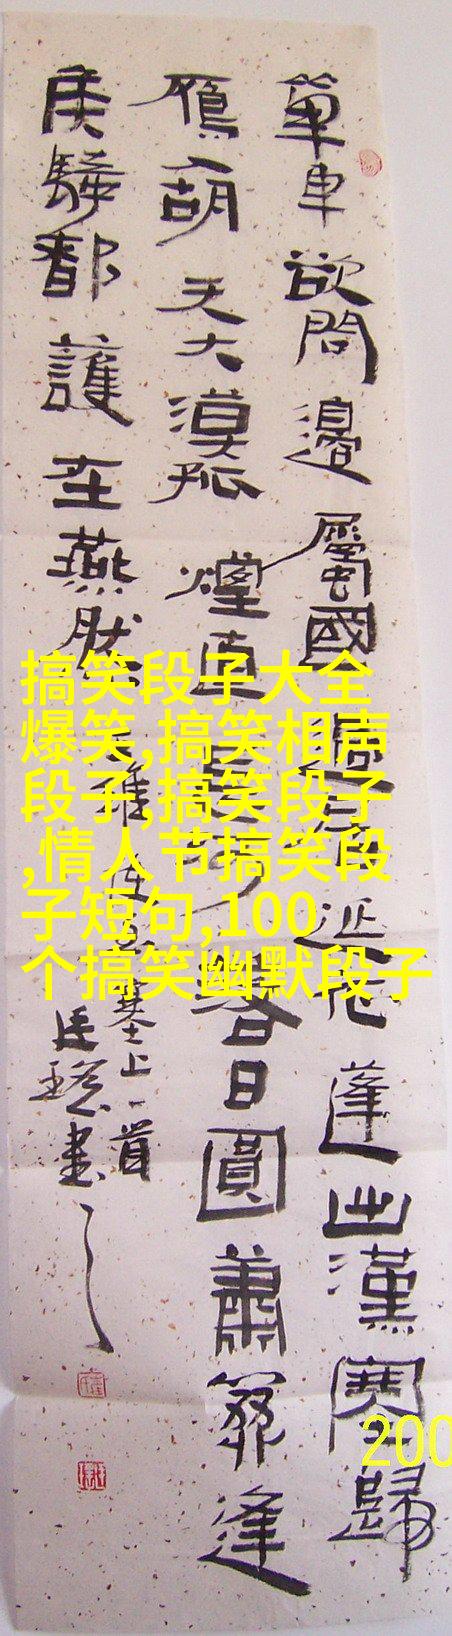 單車欲問邊屬國過居延征蓬出漢塞歸
鴈入胡天大漠孤煙直長河落日圓蕭關逢
候騎都護在燕然
王維使至塞上一首
書
搞笑段子大全
爆笑,搞笑相声
段子,搞笑段子
,情人节搞笑段
子短句,100
个搞笑幽默段子
200